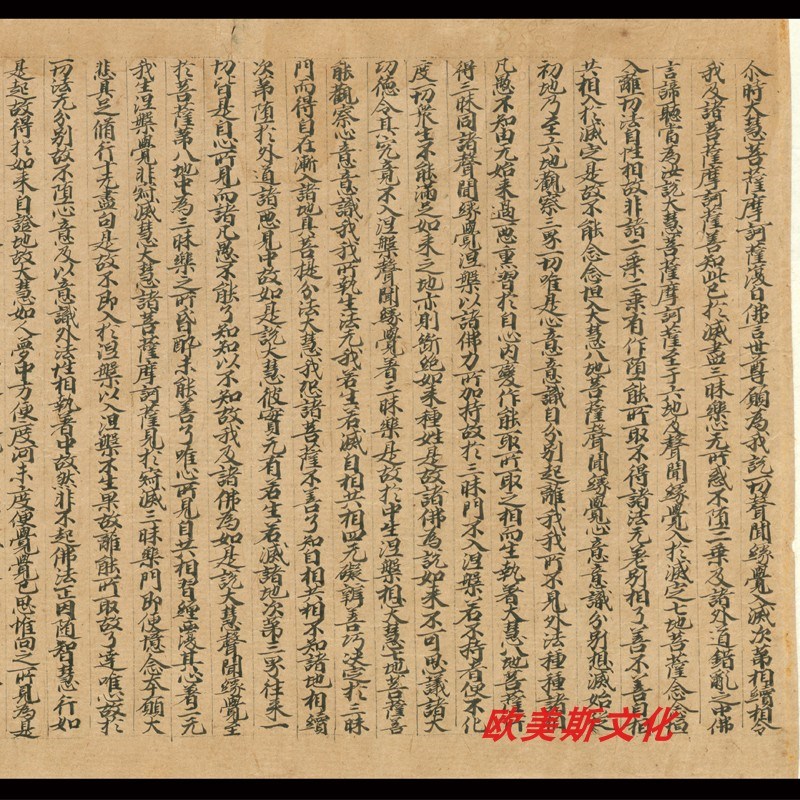 尒時大慧菩薩摩訶薩復白佛言世尊願為我說一切聲聞緣覺入滅次第相續相令
我及諸菩薩摩訶薩善知此已於滅盡三昧樂心无所惑不墮二乘及諸外道錯亂之中佛
言諦聽當為汝說大慧菩薩摩訶薩至于六地及聲聞緣覺入於滅定七地菩薩念念恒
入離一切法自性相故非諸二乘二乘有作墮能所取不得諸法无差別相了善不善自相
共相入於滅定是故不能念念恒入大慧八地菩薩聲聞緣覺心意意識分別想滅始從
初地乃至六地觀察三界一切唯是心意意識自分別起離我我所不見外法種種諸相
凡愚不知由无始來過惡熏習於自心內變作能取所取之相而生執著大慧八地菩薩所
得三昧同諸聲聞緣覺涅槃以諸佛力所加持故於三昧門不入涅槃若不持者便不化
度一切衆生不能滿足如來之地亦則斷絕如來種姓是故諸佛為說如來不可思議諸大
功德令其究竟不入涅槃聲聞緣覺著三昧樂是故於中生涅槃想大慧七地菩薩善
能觀察心意意識我我所執生法无我若生若滅自相共相四无礙辯善巧決定於三昧
門而得自在漸入諸地具菩提分法大慧我恐諸菩薩不善了知自相共相不知諸地相續
次第墮於外道諸惡見中故如是說大慧彼實无有若生若滅諸地次第三界往來一
切皆是自心所見而諸凡愚不能了知以不知故我及諸佛為如是說大慧聲聞緣覺至
於菩薩第八地中為三昧樂之所昏醉未能善了唯心所見自共相習纏覆其心著二无
我生涅槃覺非寂滅慧大慧諸菩薩摩訶薩見於寂滅三昧樂門即便憶念本願大
悲具足脩行十无盡句是故不即入於涅槃以入涅槃不生果故離能所取故了達唯心故於
一切法无分別故不墮心意及以意識外法性相執著中故然非不起佛法正因隨智慧行如
是起故得於如來自證地故大慧如人夢中方便度河未度便覺覺已思惟向之所見為是
欧美斯文化